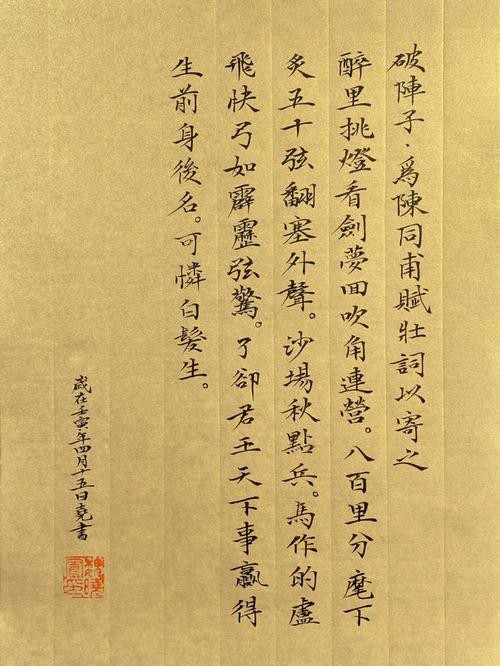 破陣子·爲陳同甫賦壯詞以寄之
醉里挑燈看劍夢回吹角連營。八百里分麾下
炙五十弦翻塞外聲。沙場秋點兵。馬作的盧
飛快弓如霹靂弦驚。了卻君王天下事贏得
生前身後名。可憐白髮生。
歲在壬寅年四月十五日堯書